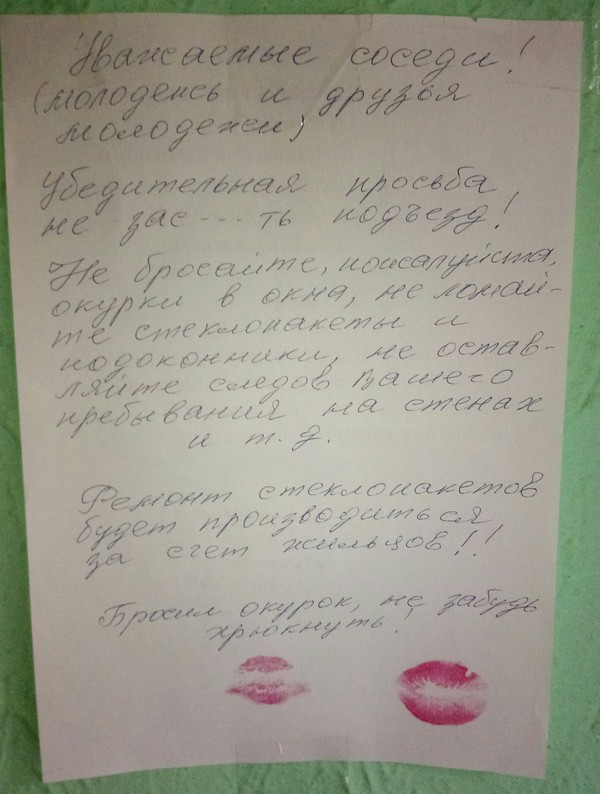 Уважаемые соседи!
(молодежь и друзья
молодежи)
Убедительная просьба
не зас---ть подъезд!
Не бросайте, пожалуйста,
окурки в окна, не ломай-
те стеклопакеты и
подоконники, не остав-
ляйте следов Вашего
пребывания на стенах
и т.д.
Ремонт стеклопакетов
будет производиться
за счет жильцов!!
Бросил окурок, не забудь
хрюкнуть!